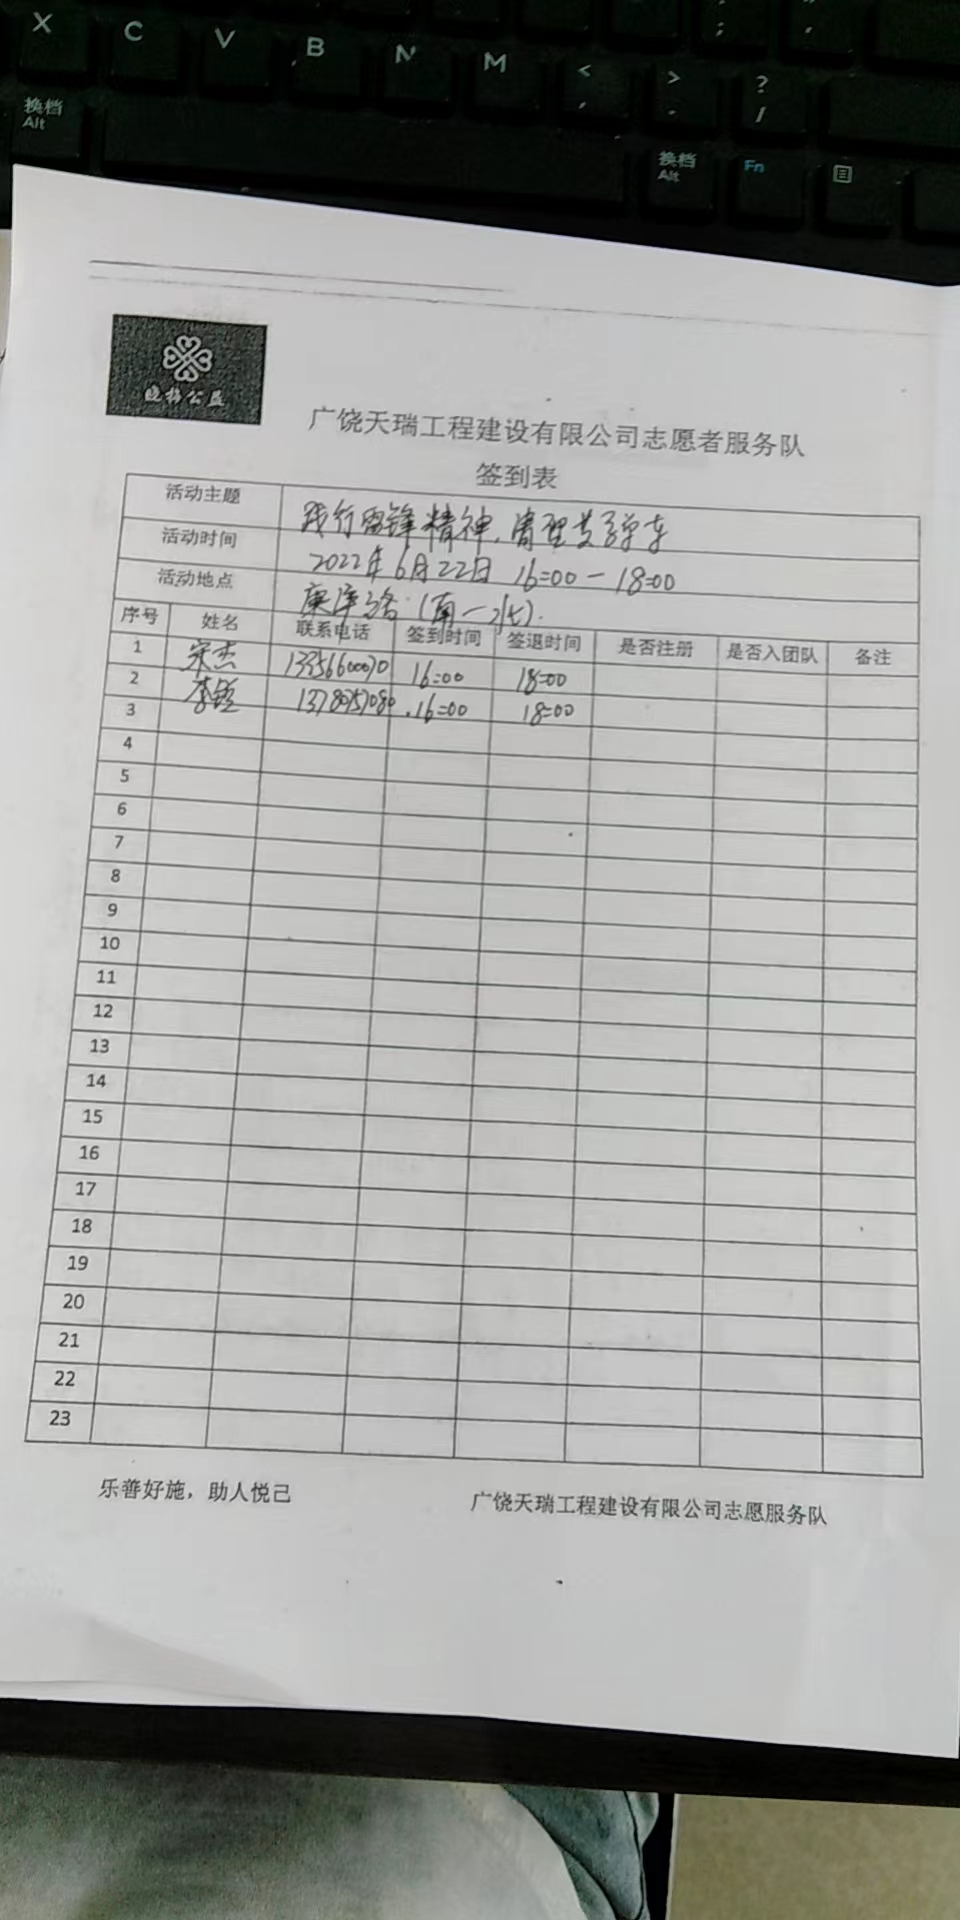 X C V B N M < , > . ? /
; : ' "
换档 Alt
换档 Alt Fn
晓梅公益
广饶天瑞工程建设有限公司志愿者服务队
签到表
活动主题 践行雷锋精神,清理共享单车
活动时间 2022年6月22日 16:00-18:00
活动地点 康泽路(南-北).
序号 姓名 联系电话 签到时间 签退时间 是否注册 是否入团队 备注
1 宋杰 16:00 18:00
2 李 16:00 18:00
3
4
5
6
7
8
9
10
11
12
13
14
15
16
17
18
19
20
21
22
23
乐善好施,助人悦己 广饶天瑞工程建设有限公司志愿服务队